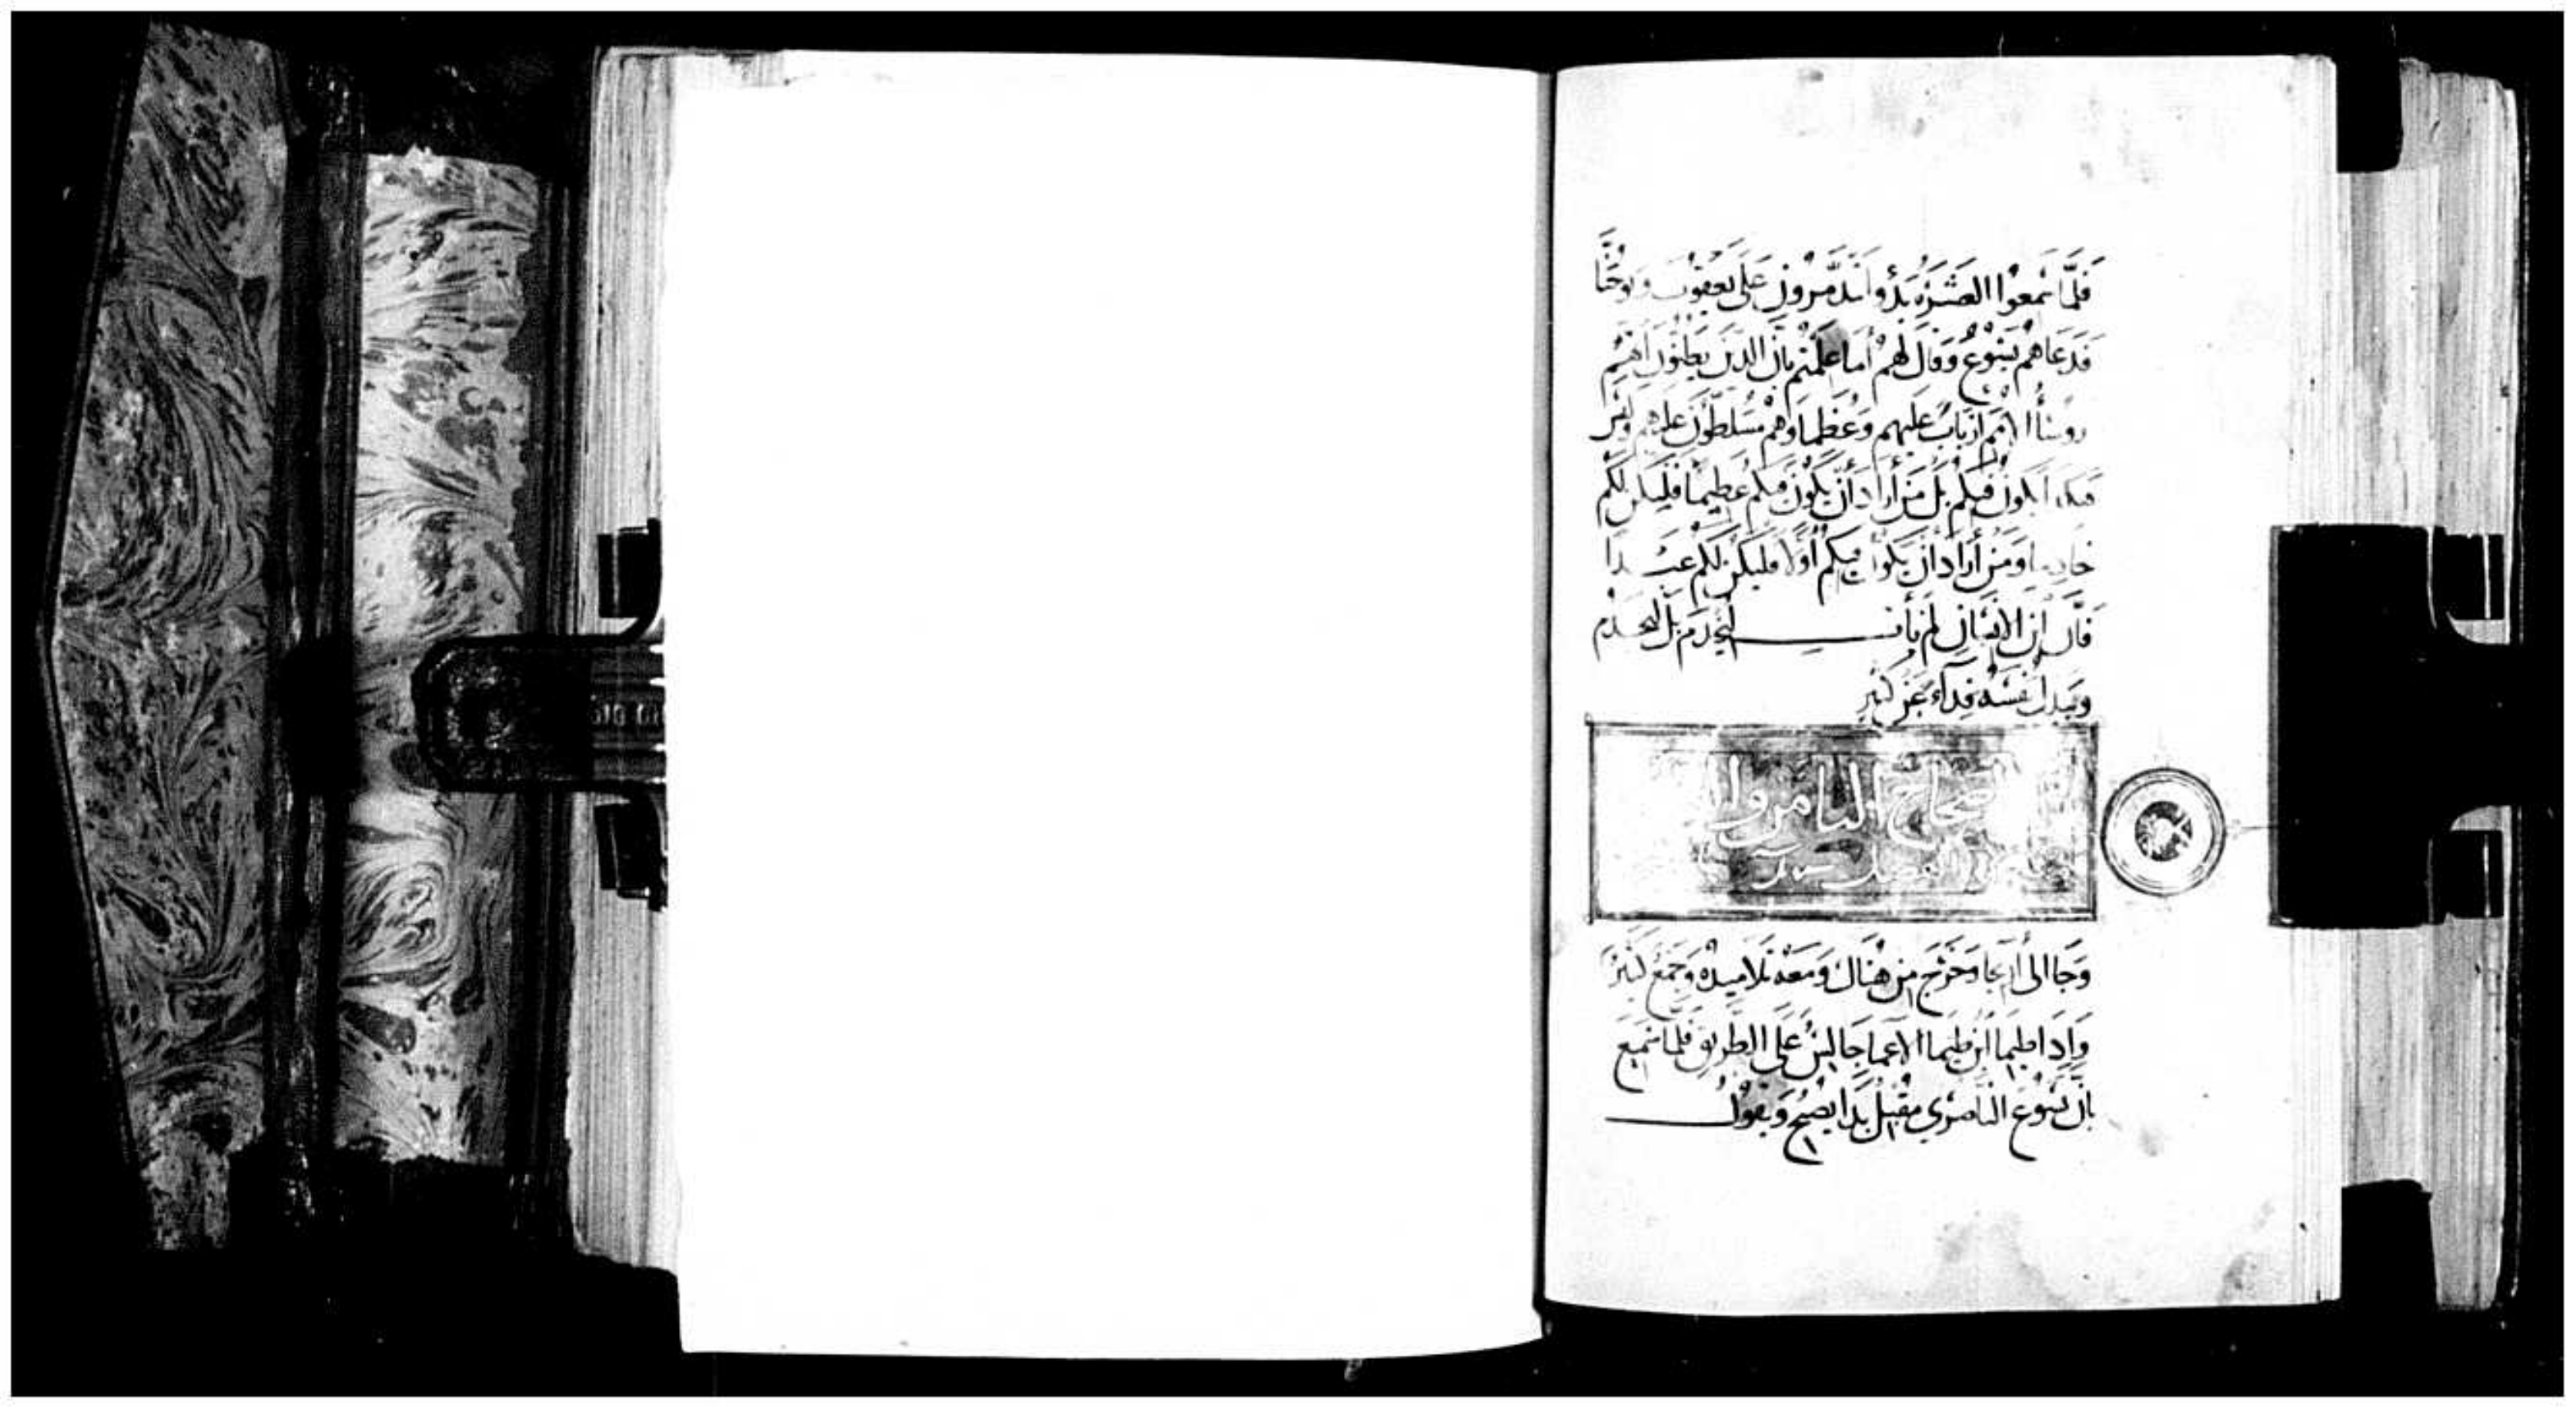 فَلَمَّا سَمِعُوا العَشَرَةُ بَدَؤا يَتَذَمَّرُونَ عَلَى يَعقُوبَ وَيُوحَنَّا
فَدَعَاهُم يَسُوعُ وَقَالَ لَهُم أمَا عَلِمْتُم بِأنَّ الدينَ يَظُنُّونَ أنَّهُم
روسَأُ الأُمَمِ أربَابٌ عَلَيهِم وَعُظَمَاوهُم مُسَلَّطُونَ عَلَيهِم وَلَيسَ
هكَدَا يَكُونُ فِيكُم بَل مَن أرَادَ أن يَكُونَ فِيكُم عَظِيمًا فَلْيَكُن لَكُم
خَادِمًا وَمَن أرَادَ أن يَكُونَ فِيكُم أوَّلًا فَليَكُن لَكُم عَبدًا
فَاِنَّ اِبنَ الاِنسَانِ لَم يَأتِ لِيُخْدَمَ بَل لِيَخدُمَ
وَيَبدلَ نَفسَهُ فِدَاءً عَن كَثِيرٍ
وَجَا الى أرِيحَا وَخَرَجَ مِن هُنَاكَ وَمَعَهُ تَلامِيدُهُ وَجَمْعٌ كَثِيرٌ
وَاِدَا طيما ابن طيما الاعمَا جَالِسٌ عَلَى الطَرِيقِ فَلَمَّا سَمِعَ
بِأنَّ يَسُوعَ النَاصِرِي مُقبِلٌ بَدَا يَصِيحُ وَيَقُولُ